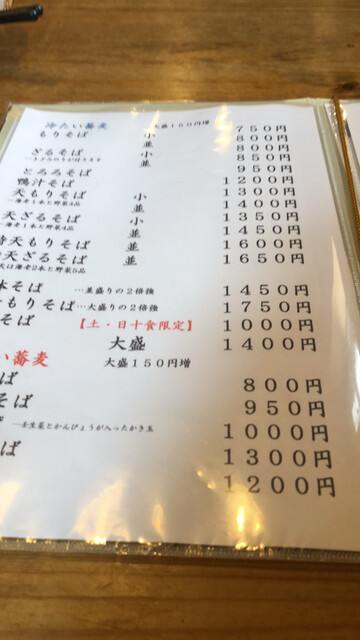 冷たい蕎麦 大盛１５０円増
もりそば 小 ７５０円
並 ８００円
ざるそば 小 ８００円
並 ８５０円
とろろそば ９５０円
鴨汁そば １２００円
天もりそば 小 １３００円
―海老１本と野菜4品 並 １４００円
天ざるそば 小 １３５０円
―海老１本と野菜4品 並 １４５０円
特天もりそば １６００円
天ざるそば １６５０円
天は海老２本と野菜５品
そば …並盛りの２倍強 １４５０円
もりそば …大盛りの２倍強 １７５０円
そば 【土・日十食限定】 １０００円
大盛 １４００円
い蕎麦 大盛１５０円増
ば ８００円
そば ９５０円
―壬生菜とかんぴょうが入ったかき玉 １０００円
ば １３００円
１２００円